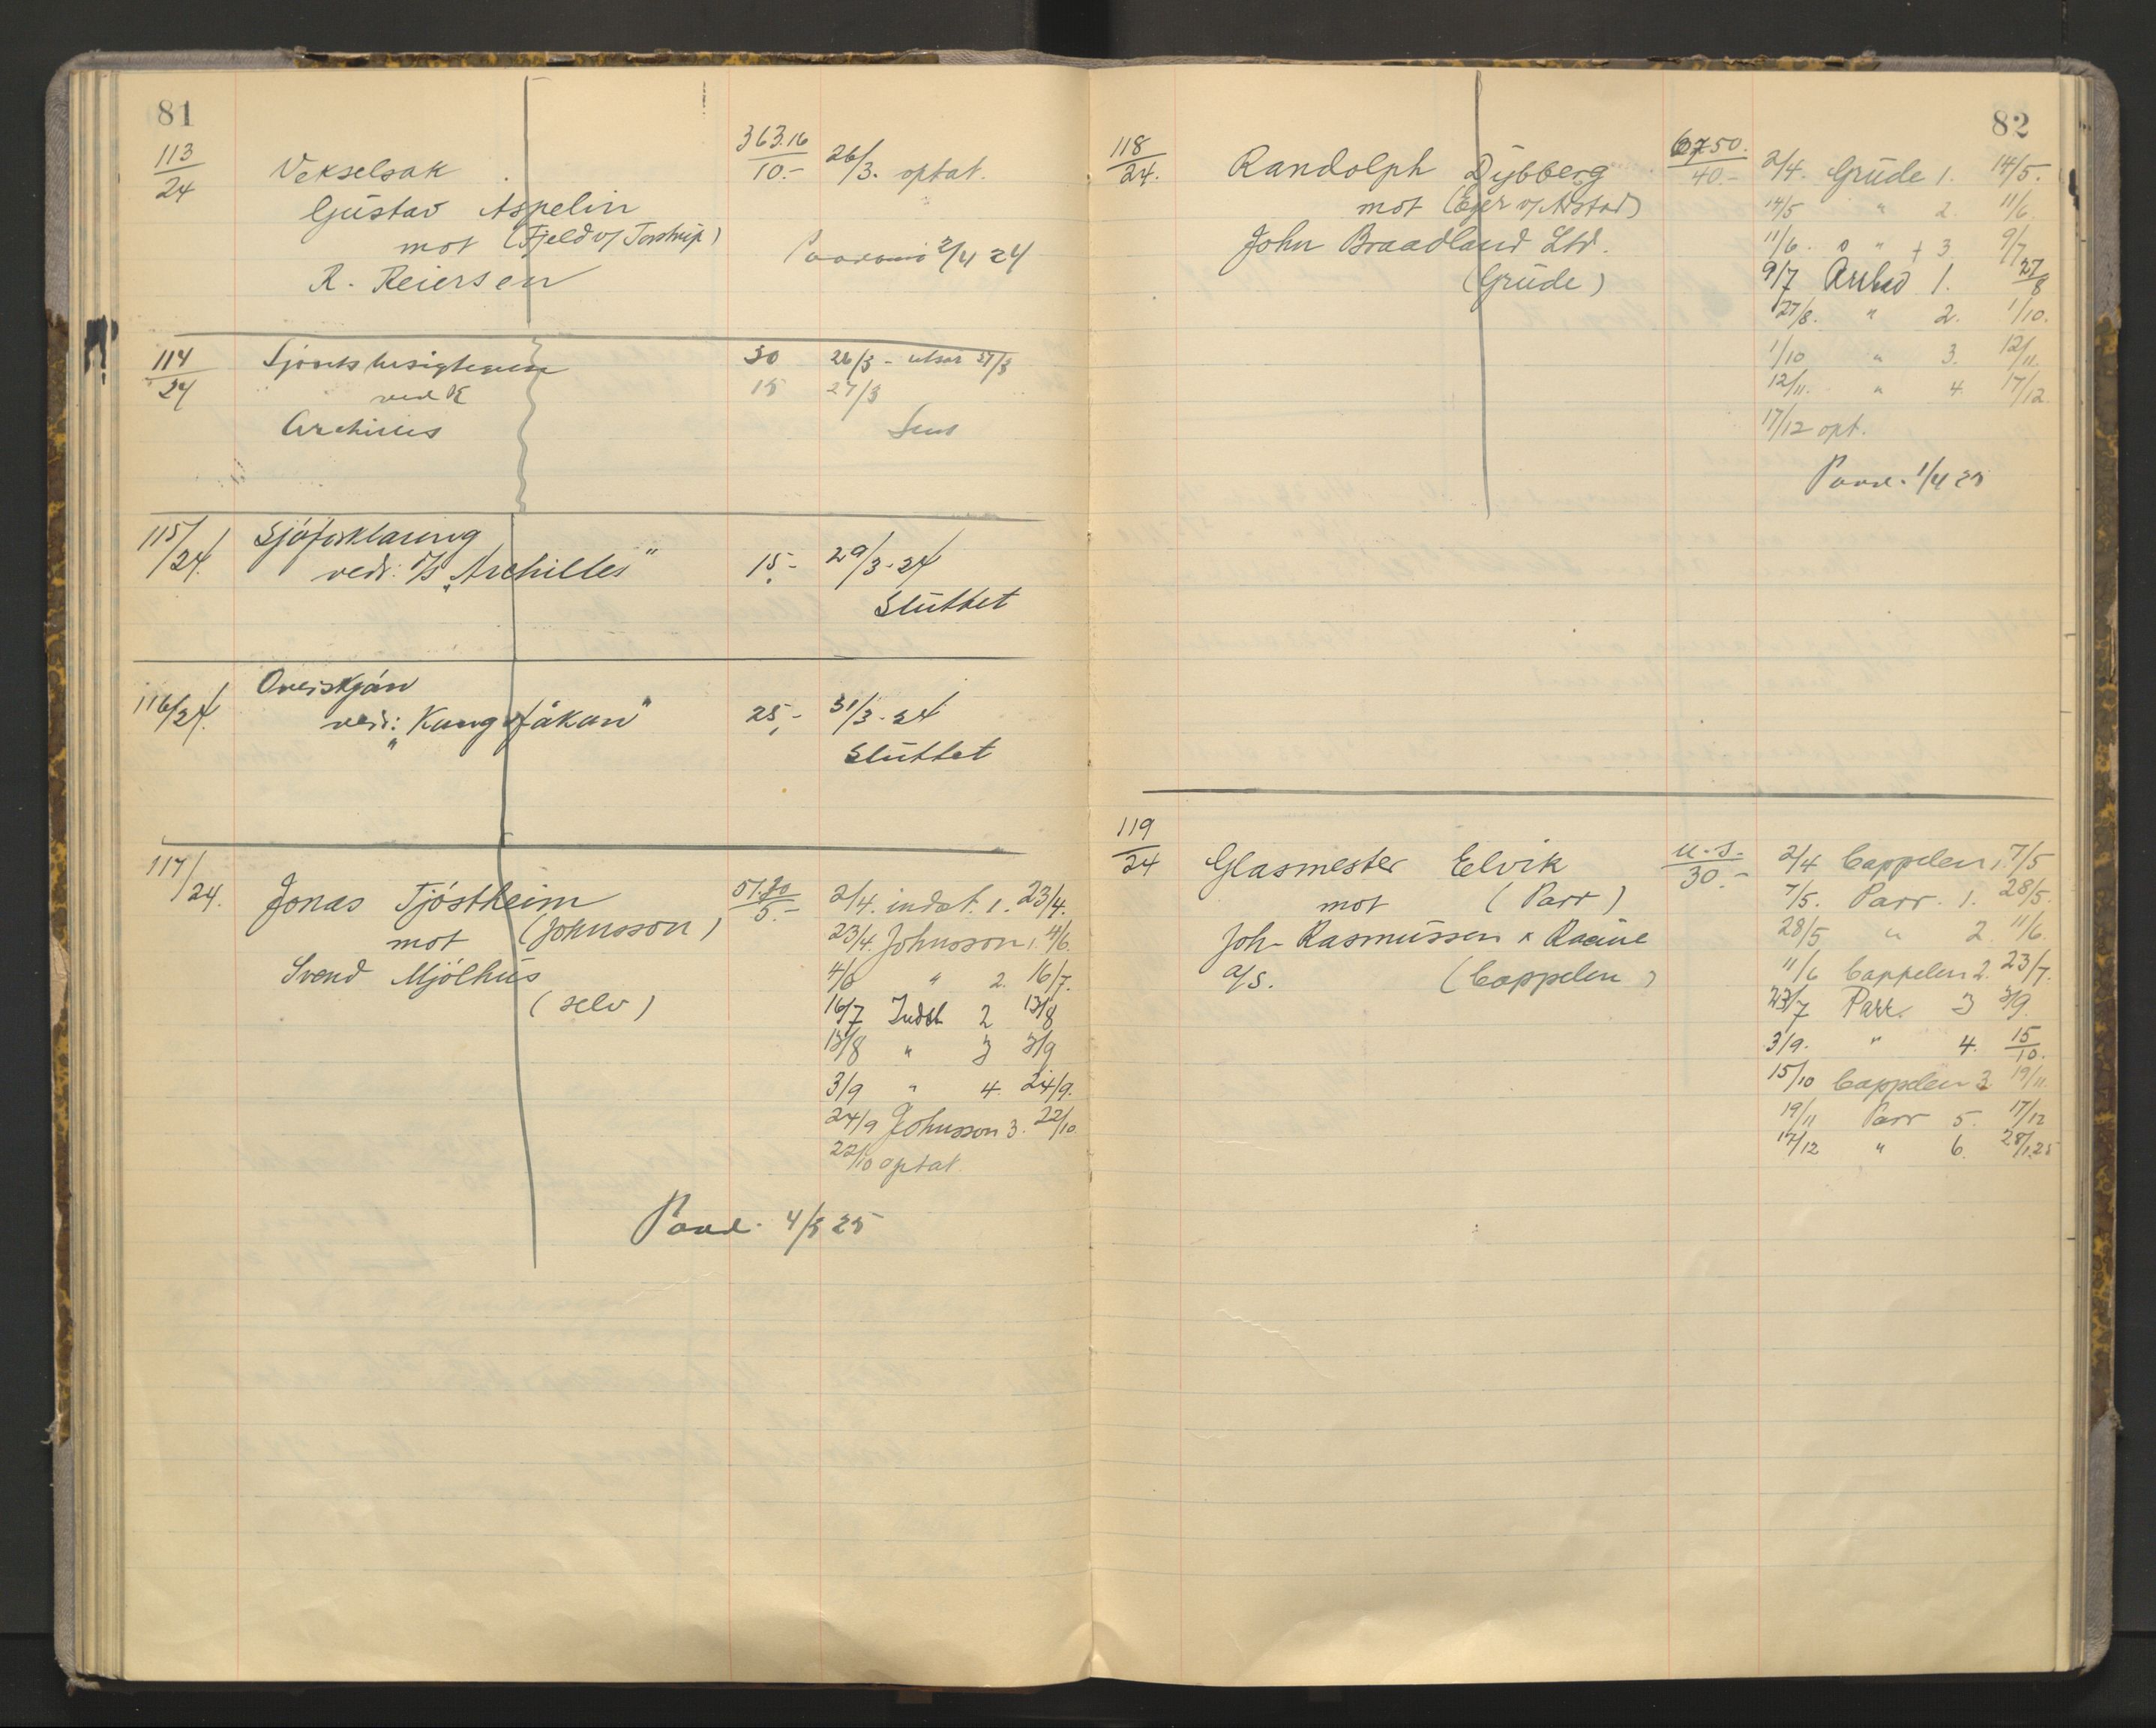 81
113/24 Vekselsak 363.16/10.- 26/3. optat.
Gustav Aspelin
mot (Fjeld v/ Torstrup)
R. Reiersen 2/4 24
114/24 30 26/3 -
ved 15 27/3
Archilles
115/24. Sjøforklaring
vedr: D/S „Archilles" 15,- 29/3-24
Sluttet
116/24.
vedr: „Kung Håkan" 25,- 31/3-24
Sluttet
117/24. Jonas Tjöstheim 5.- 2/4. indst. 1. 23/4.
mot (Johnsson) 23/4. Johnsson 1. 4/6.
Svend Mjölhus 4/6 " 2. 16/7.
(selv) 16/7 Indst 2 13/8
13/8 " 3 3/9
3/9 " 4. 24/9.
24/9 Johnsson 3. 22/10.
22/10 optat.
82
118/24. Randolph Dybberg 40.- 2/4. Grude 1. 14/5.
mot (Eger v/ Arstad) 14/5 " 2. 11/6.
John Braadland Ltd. 11/6. " 3. 9/7
(Grude) 9/7 Arstad 1. 27/8
27/8. " 2. 1/10.
1/10 " 3. 12/11.
12/11. " 4. 17/12.
17/12 opt.
119/24 Glasmester Elvik u.s./30.- 2/4 Cappelen 1. 7/5
mot (Parr) 7/5. Parr. 1. 28/5.
Joh. Rasmussen & Raaue 28/5 " 2. 11/6.
a/s. (Cappelen) 11/6 Cappelen 2. 23/7.
23/7 Parr. 3 3/9.
3/9. " 4. 15/10.
15/10 Cappelen 3 19/11.
19/11 Parr 5. 17/12
17/12 " 6. 28/1.25